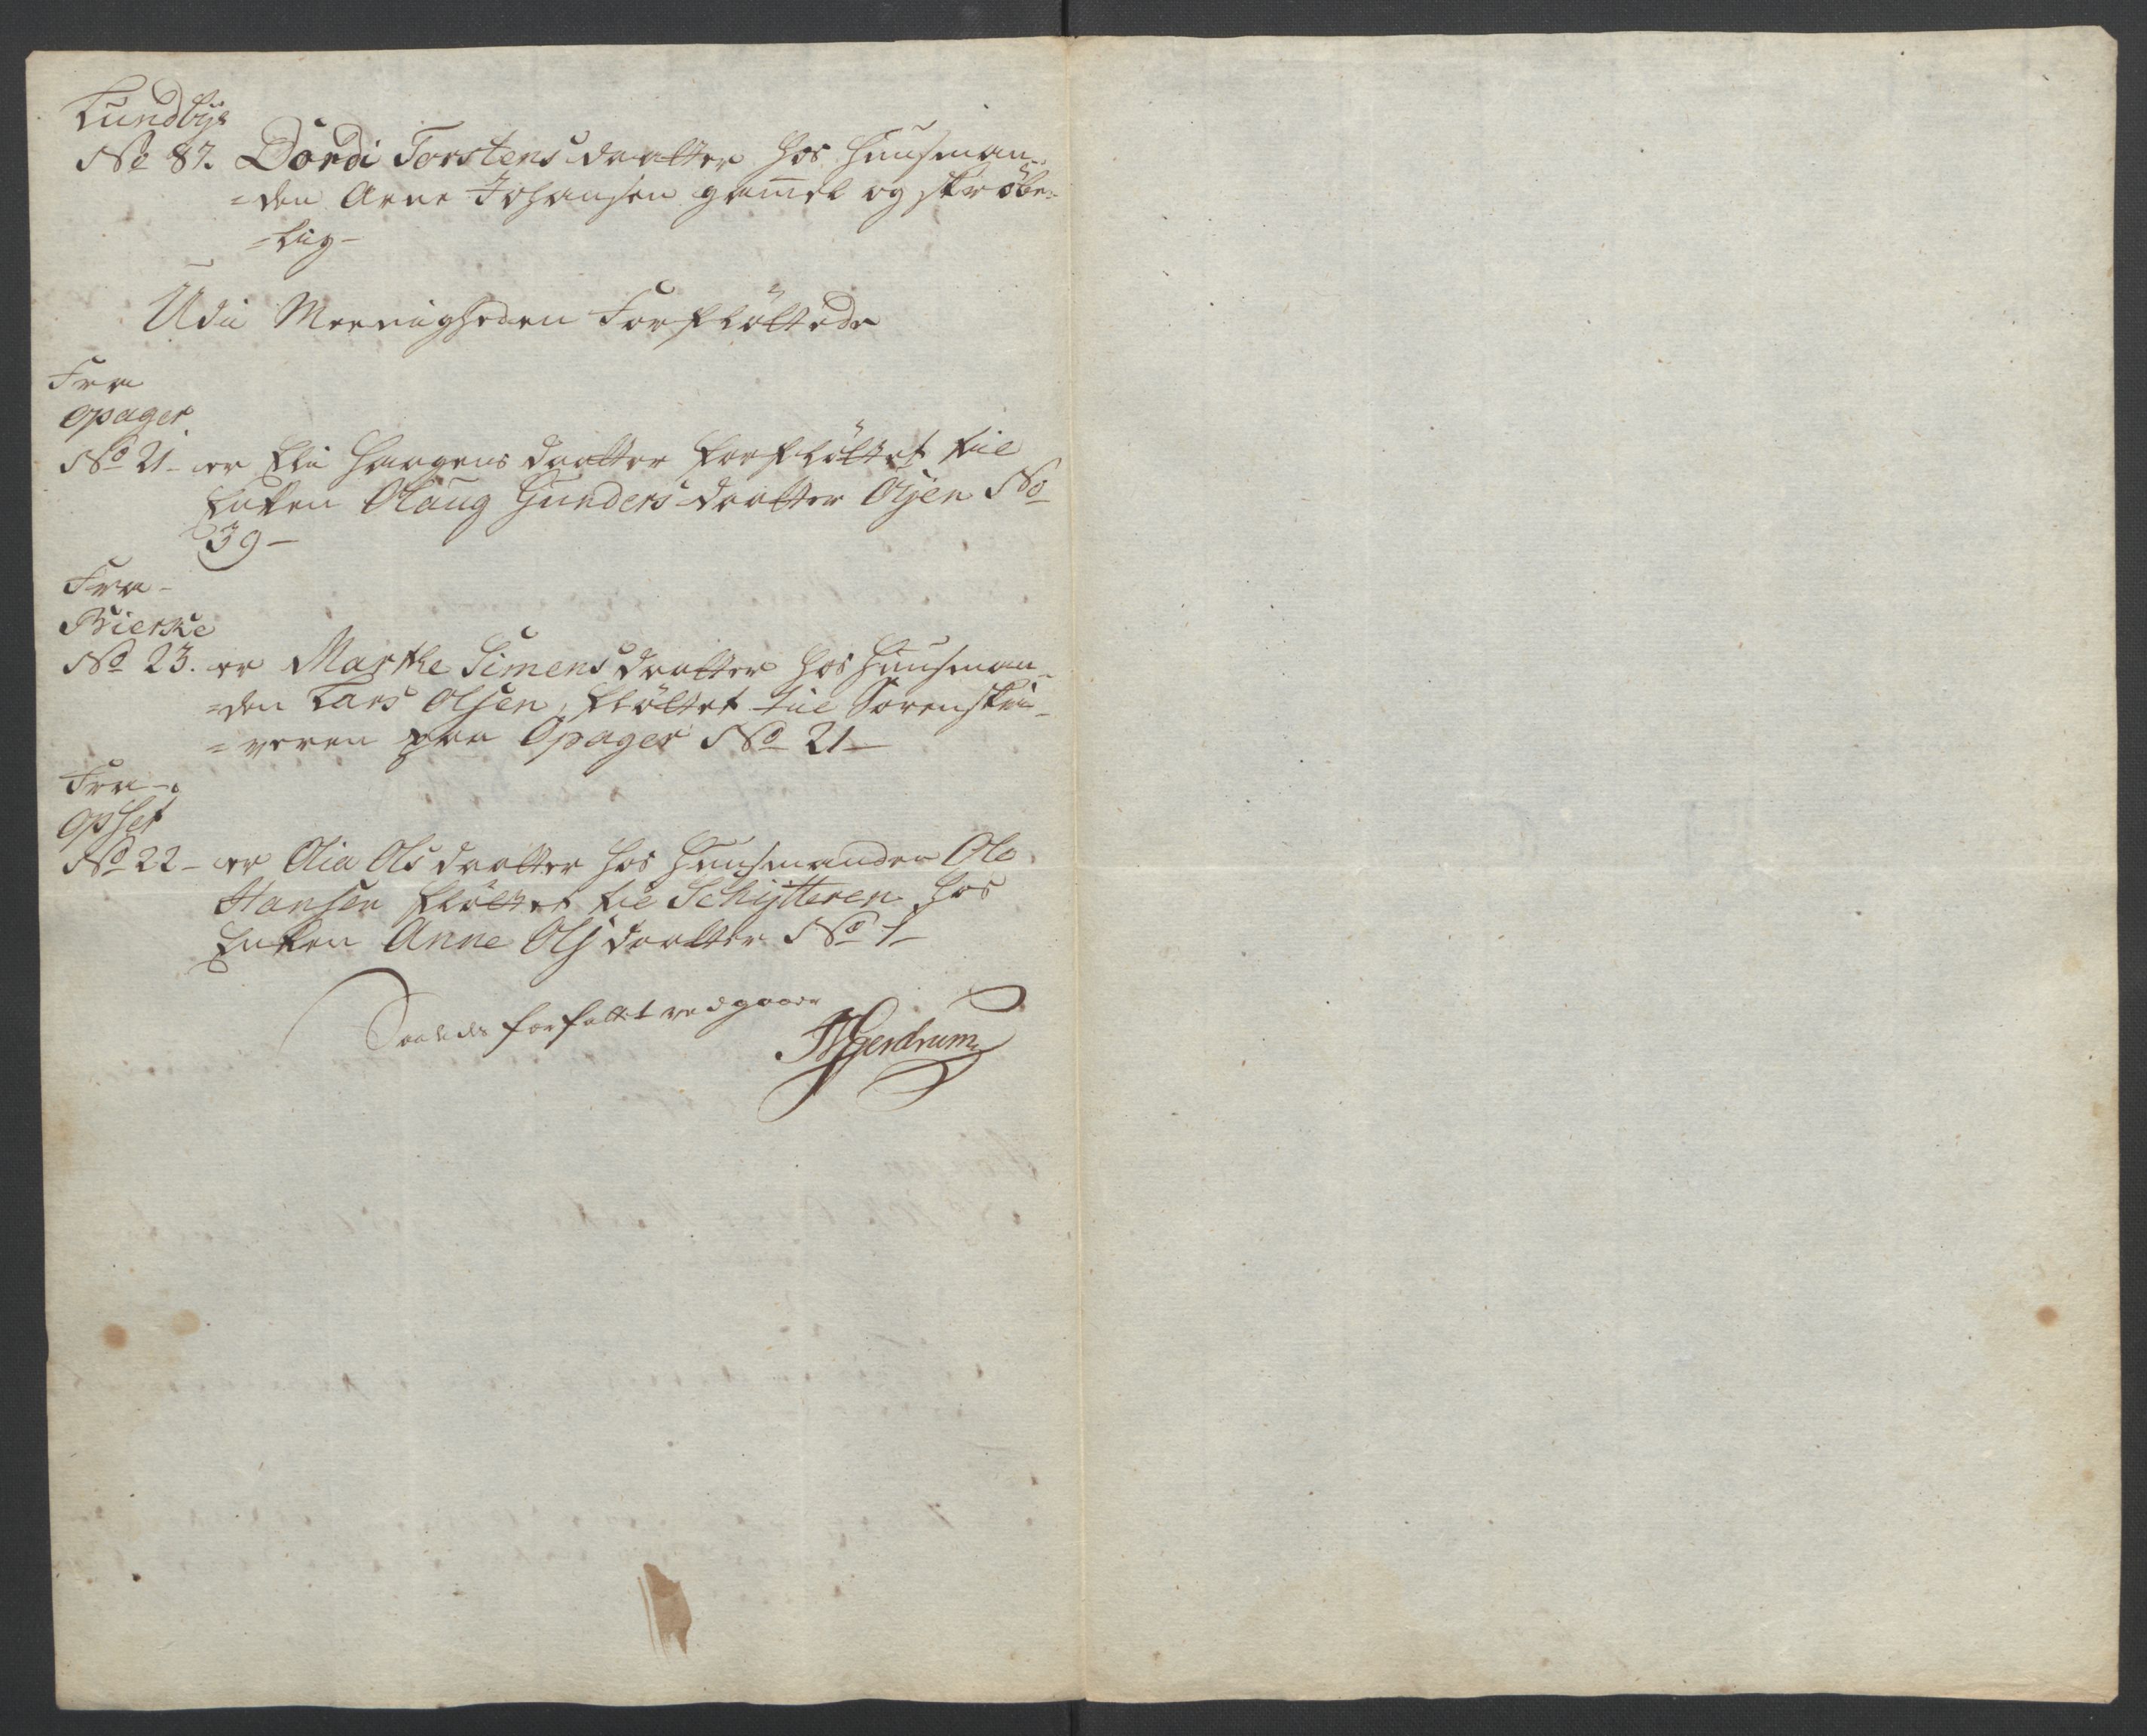 Lundbye
No 87. Dordi Torstens daatter hos Huusman-
=den Arne Johansen gamel og skröbe-
=lig-
Udi Meenigheden Forflöttede
Fra
Opager
No 21- er Eli Haagens daatter forflöttet til
Enken Olaug Gunders daatter Öyen No
39-
Fra-
Bierke
No 23. er Marthe Simens daatter hos Huusman-
=den Lars Olsen, flöttet til Sorenskri-
=veren paa Opager No 21-
Fra-
Opset
No 22- er Olia Ols daatter hos Huusmanden Ole
Hansen flöttet til Schytteren hos
Enken Anne Ols daatter No 1-
Saaledes forfattet vedgaaer
Gjerdrum